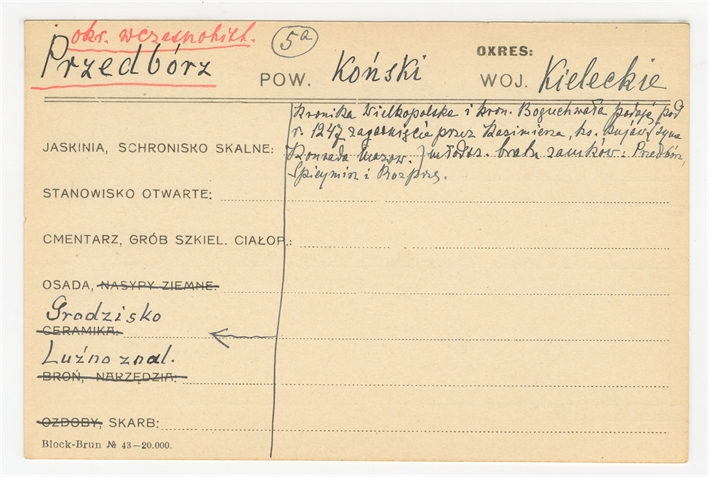 okr. wczesnohist.
5a
Przedbórz
POW. Koński
OKRES:
WOJ. Kieleckie
Kronika Wielkopolska i kron. Boguchwała podaje, pod
r. 1247 zagarnięcie przez Kazimierza, ks. Kujaw / syna
Konrada Mazow. / młodsz. bratu zamków: Przedbórz,
Spicymirz i Rozprzę.
JASKINIA, SCHRONISKO SKALNE:
STANOWISKO OTWARTE:
CMENTARZ, GRÓB SZKIEL. CIAŁOP.:
OSADA, NASYPY ZIEMNE:
Grodzisko
CERAMIKA:
Luźno znal.
BROŃ, NARZĘDZIA:
OZDOBY, SKARB:
Block-Brun № 43—20.000.